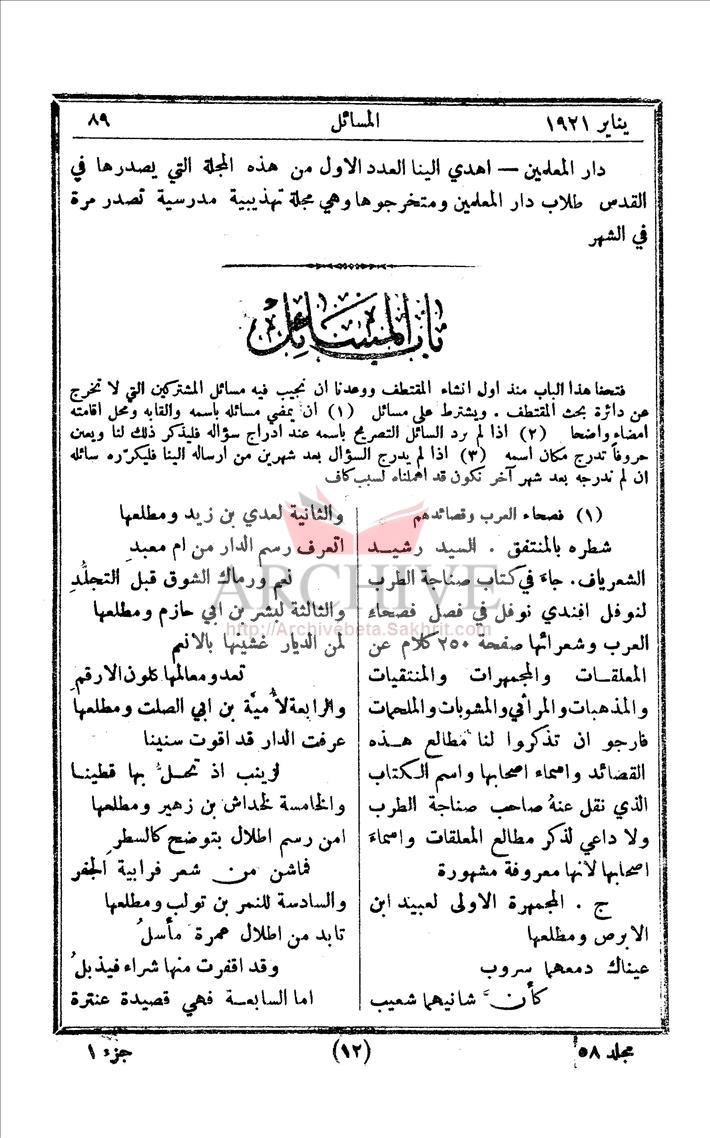 يناير ١٩٢١
المسائل
٨٩
دار المعلمين — اهدي الينا العدد الاول من هذه المجلة التي يصدرها في
القدس طلاب دار المعلمين ومتخرجوها وهي مجلة تهذيبية مدرسية تصدر مرة
في الشهر
باب المسائل
فتحنا هذا الباب منذ اول انشاء المقتطف ووعدنا ان نجيب فيه مسائل المشتركين التي لا تخرج
عن دائرة بحث المقتطف . ويشترط على مسائل (١) ان يمضي مسائله باسمه والقابه ومحل اقامته
امضاء واضحا (٢) اذا لم يرد السائل التصريح باسمه عند ادراج سؤاله فليذكر ذلك لنا ويعين
حروفاً تدرج مكان اسمه (٣) اذا لم يدرج السؤال بعد شهرين من ارساله الينا فليكرّره سائله
ان لم ندرجه بعد شهر آخر نكون قد اهملناه لسبب كاف
(١) فصحاء العرب وقصائدهم
شطره بالمنتفق . السيد رشيد
الشعرياف. جاءَ في كتاب صناجة الطرب
لنوفل افندي نوفل في فصل فصحاء
العرب وشعرائها صفحة ٢٥٠ كلام عن
المعلقات والمجمهرات والمنتقيات
والمذهبات والمراثي والمشوبات والملحمات
فارجو ان تذكروا لنا مطالع هذه
القصائد واسماء اصحابها واسم الكتاب
الذي نقل عنهُ صاحب صناجة الطرب
ولا داعي لذكر مطالع المعلقات واسماءَ
اصحابها لانها معروفة مشهورة
ج . المجمهرة الاولى لعبيد ابن
الابرص ومطلعها
عيناك دمعهما سروب
كأنَّ شانيهما شعيب
والثانية لعدي بن زيد ومطلعها
اتعرف رسم الدار من ام معبدِ
نعم ورماك الشوق قبل التجلُّدِ
والثالثة لبشر بن ابي حازم ومطلعها
لمن الديار غشيتها بالانعم
تعدو معالمها كلون الارقمِ
والرابعة لأُميَّة بن ابي الصلت ومطلعها
عرفت الدار قد اقوت سنينا
لزينب اذ تحلُّ بها قطينا
والخامسة لخداش بن زهير ومطلعها
امن رسم اطلال بتوضح كالسطرِ
فماشن من شعر فرابية الجفر
والسادسة للنمر بن تولب ومطلعها
تابد من اطلال عمرة مأسلُ
وقد اقفرت منها شراء فيذبلُ
اما السابعة فهي قصيدة عنترة
مجلد ٥٨
(١٢)
جزء ١
ARCHIVE
http://Archivebeta.Sakhrit.com